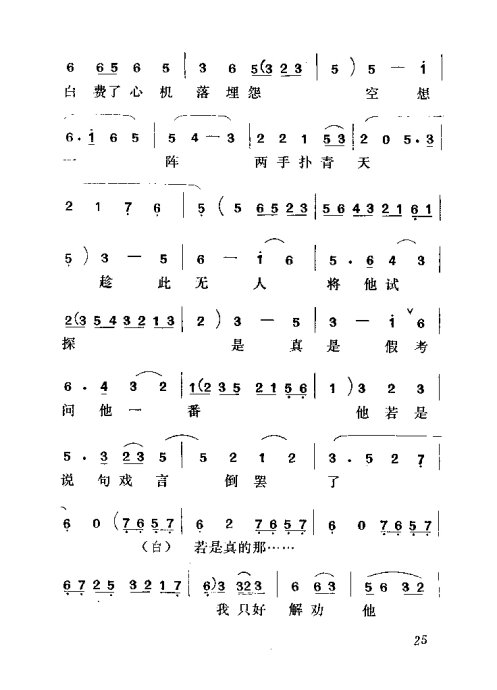 6 6 5 6 5 | 3 6 5 (3 2 3 | 5 ) 5 — i
白 费了 心 机 落 埋 怨 空 想
6 · 1 6 5 | 5 4 — 3 | 2 2 1 5 3 | 2 0 5 · 3 |
一 阵 两 手 扑 青 天
2 1 7 6 | 5 ( 5 6 5 2 3 | 5 6 4 3 2 1 6 1 |
5 ) 3 — 5 | 6 — i 6 | 5 · 6 4 3 |
趁 此 无 人 将 他 试
2 (3 5 4 3 2 1 3 | 2 ) 3 — 5 | 3 — i 6 |
探 是 真 是 假 考
6 · 4 3 2 | 1 (2 3 5 2 1 5 6 | 1 ) 3 2 3 |
问 他 一 番 他 若 是
5 · 3 2 3 5 | 5 2 1 2 | 3 · 5 2 7 |
说 句 戏 言 倒 罢 了
6 0 (7 6 5 7 | 6 2 7 6 5 7 | 6 0 7 6 5 7 |
（白） 若是真的那……
6 7 2 5 3 2 1 7 | 6 ) 3 3 2 3 | 6 6 3 | 5 6 3 2 |
我 只好 解 劝 他
25